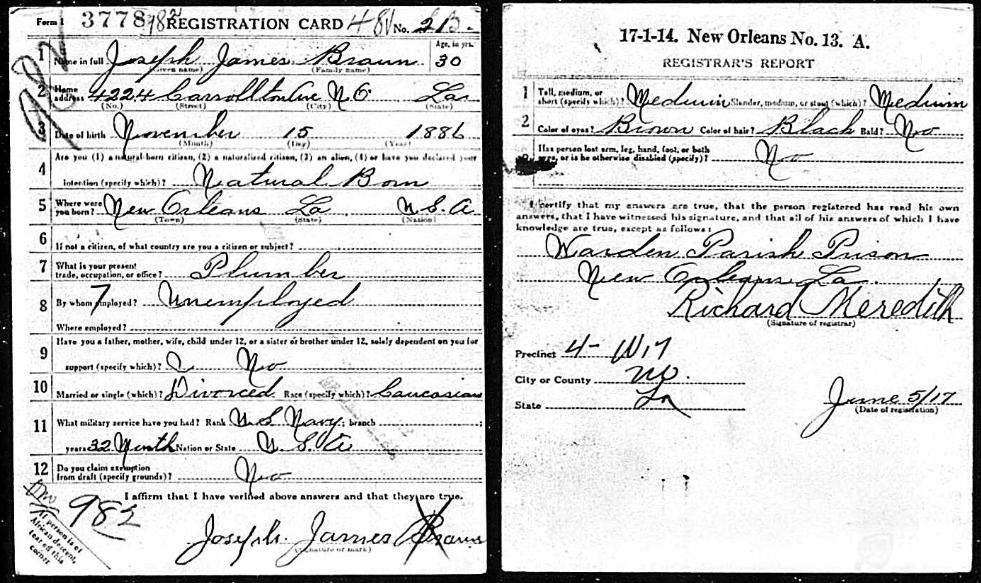 Form 1 3778 982 REGISTRATION CARD 481 No. 213.
982
1 Name in full Joseph James Braun Age, in yrs. 30
(Given name) (Family name)
2 Home address 4224 Carrollton Ave N.O La
(No.) (Street) (City) (State)
3 Date of birth November 15 1886
(Month) (Day) (Year)
Are you (1) a natural-born citizen, (2) a naturalized citizen, (3) an alien, (4) or have you declared your
4 intention (specify which)? Natural Born
5 Where were you born? New Orleans La U.S.A
(Town) (State) (Nation)
6 If not a citizen, of what country are you a citizen or subject?
7 What is your present trade, occupation, or office? Plumber
8 By whom employed? Unemployed
7
Where employed?
9 Have you a father, mother, wife, child under 12, or a sister or brother under 12, solely dependent on you for
support (specify which)? No
10 Married or single (which)? Divorced Race (specify which)? Caucasian
11 What military service have you had? Rank U.S. Navy; branch
years 32 Month Nation or State U.S.A
12 Do you claim exemption from draft (specify grounds)? No
I affirm that I have verified above answers and that they are true.
982
If person is of
African descent,
tear off this
corner
Joseph. James Braun
X
(Signature or mark)
17-1-14. New Orleans No. 13. A.
REGISTRAR'S REPORT
1 Tall, medium, or short (specify which)? Medium Slender, medium, or stout (which)? Medium
2 Color of eyes? Brown Color of hair? Black Bald? No
Has person lost arm, leg, hand, foot, or both
eyes, or is he otherwise disabled (specify)? No
I certify that my answers are true, that the person registered has read his own
answers, that I have witnessed his signature, and that all of his answers of which I have
knowledge are true, except as follows:
Warden Parish Prison
New Orleans La.
Richard Meredith
(Signature of registrar)
Precinct 4- W17
City or County NO.
State La
June 5/17
(Date of registration)